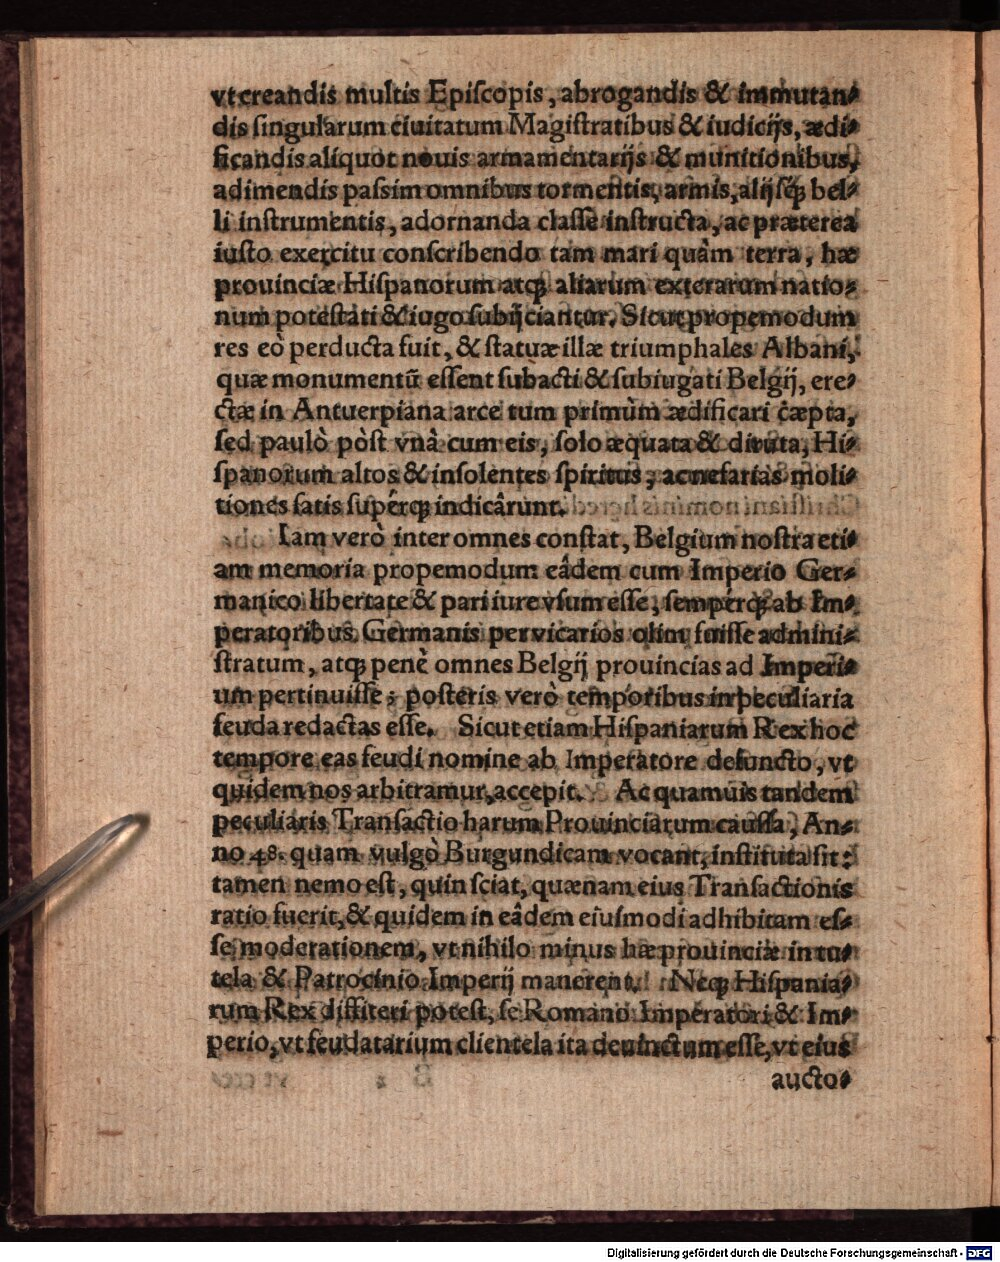 vt creandis multis Epiſcopis, abrogandis & immutan-
dis ſingularum ciuitatum Magiſtratibus & iudicijs, ædi-
ficandis aliquot nouis armamentarijs & munitionibus,
adimendis paſsim omnibus tormentis, armis, alijſq́; bel-
li inſtrumentis, adornanda claſſe inſtructa, ac præterea
iuſto exercitu conſcribendo tam mari quàm terra, hæ
prouinciæ Hiſpanorum atq; aliarum exterarum natio-
num poteſtati & iugo ſubijciantur. Sicut propemodum
res eò perducta fuit, & ſtatuæ illæ triumphales Albani,
quæ monumentũ eſſent ſubacti & ſubiugati Belgij, ere-
ctæ in Antuerpiana arce tum primùm ædificari cæpta,
ſed paulò pòſt vnâ cum eis, ſolo æquata & diruta, Hi-
ſpanorum altos & inſolentes ſpiritus, ac nefarias moli-
tiones ſatis ſupérq; indicârunt.
Iam verò inter omnes conſtat, Belgium noſtra eti-
am memoria propemodum eâdem cum Imperio Ger-
manico libertate & pari iure vſum eſſe, ſempérq; ab Im-
peratoribus Germanis per vicarios olim fuiſſe admini-
ſtratum, atq; penè omnes Belgij prouincias ad Imperi-
um pertinuiſſe; poſteris verò temporibus in peculiaria
feuda redactas eſſe. Sicut etiam Hiſpaniarum Rex hoc
tempore eas feudi nomine ab Imperatore defuncto, vt
quidem nos arbitramur, accepit. Ac quamuis tandem
peculiaris Tranſactio harum Prouinciarum cauſſa, An-
no 48. quam vulgò Burgundicam vocant, inſtituta ſit:
tamen nemo eſt, quin ſciat, quænam eius Tranſactionis
ratio fuerit, & quidem in eâdem eiuſmodi adhibitam eſ-
ſe moderationem, vt nihilo minus hæ prouinciæ in tu-
tela & Patrocinio Imperij manerent. Neq; Hiſpania-
rum Rex diffiteri poteſt, ſe Romano Imperatori & Im-
perio, vt feudatarium clientela ita deuinctum eſſe, vt eius
aucto-
Digitalisierung gefördert durch die Deutsche Forschungsgemeinschaft - DFG